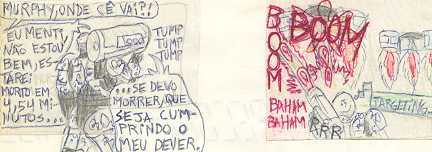 MURPHY, ONDE CÊ VAI?!
EU MENTI,
NÃO ESTOU
BEM, ES-
TAREI
MORTO EM
4,54 MI-
NUTOS...
TUMP
TUMP
TUMP
...SE DEVO
MORRER, QUE
SEJA CUM-
PRINDO O
MEU DEVER.
BOOM
BOOM
BAHAM
BAHAM
RRR
TARGETING